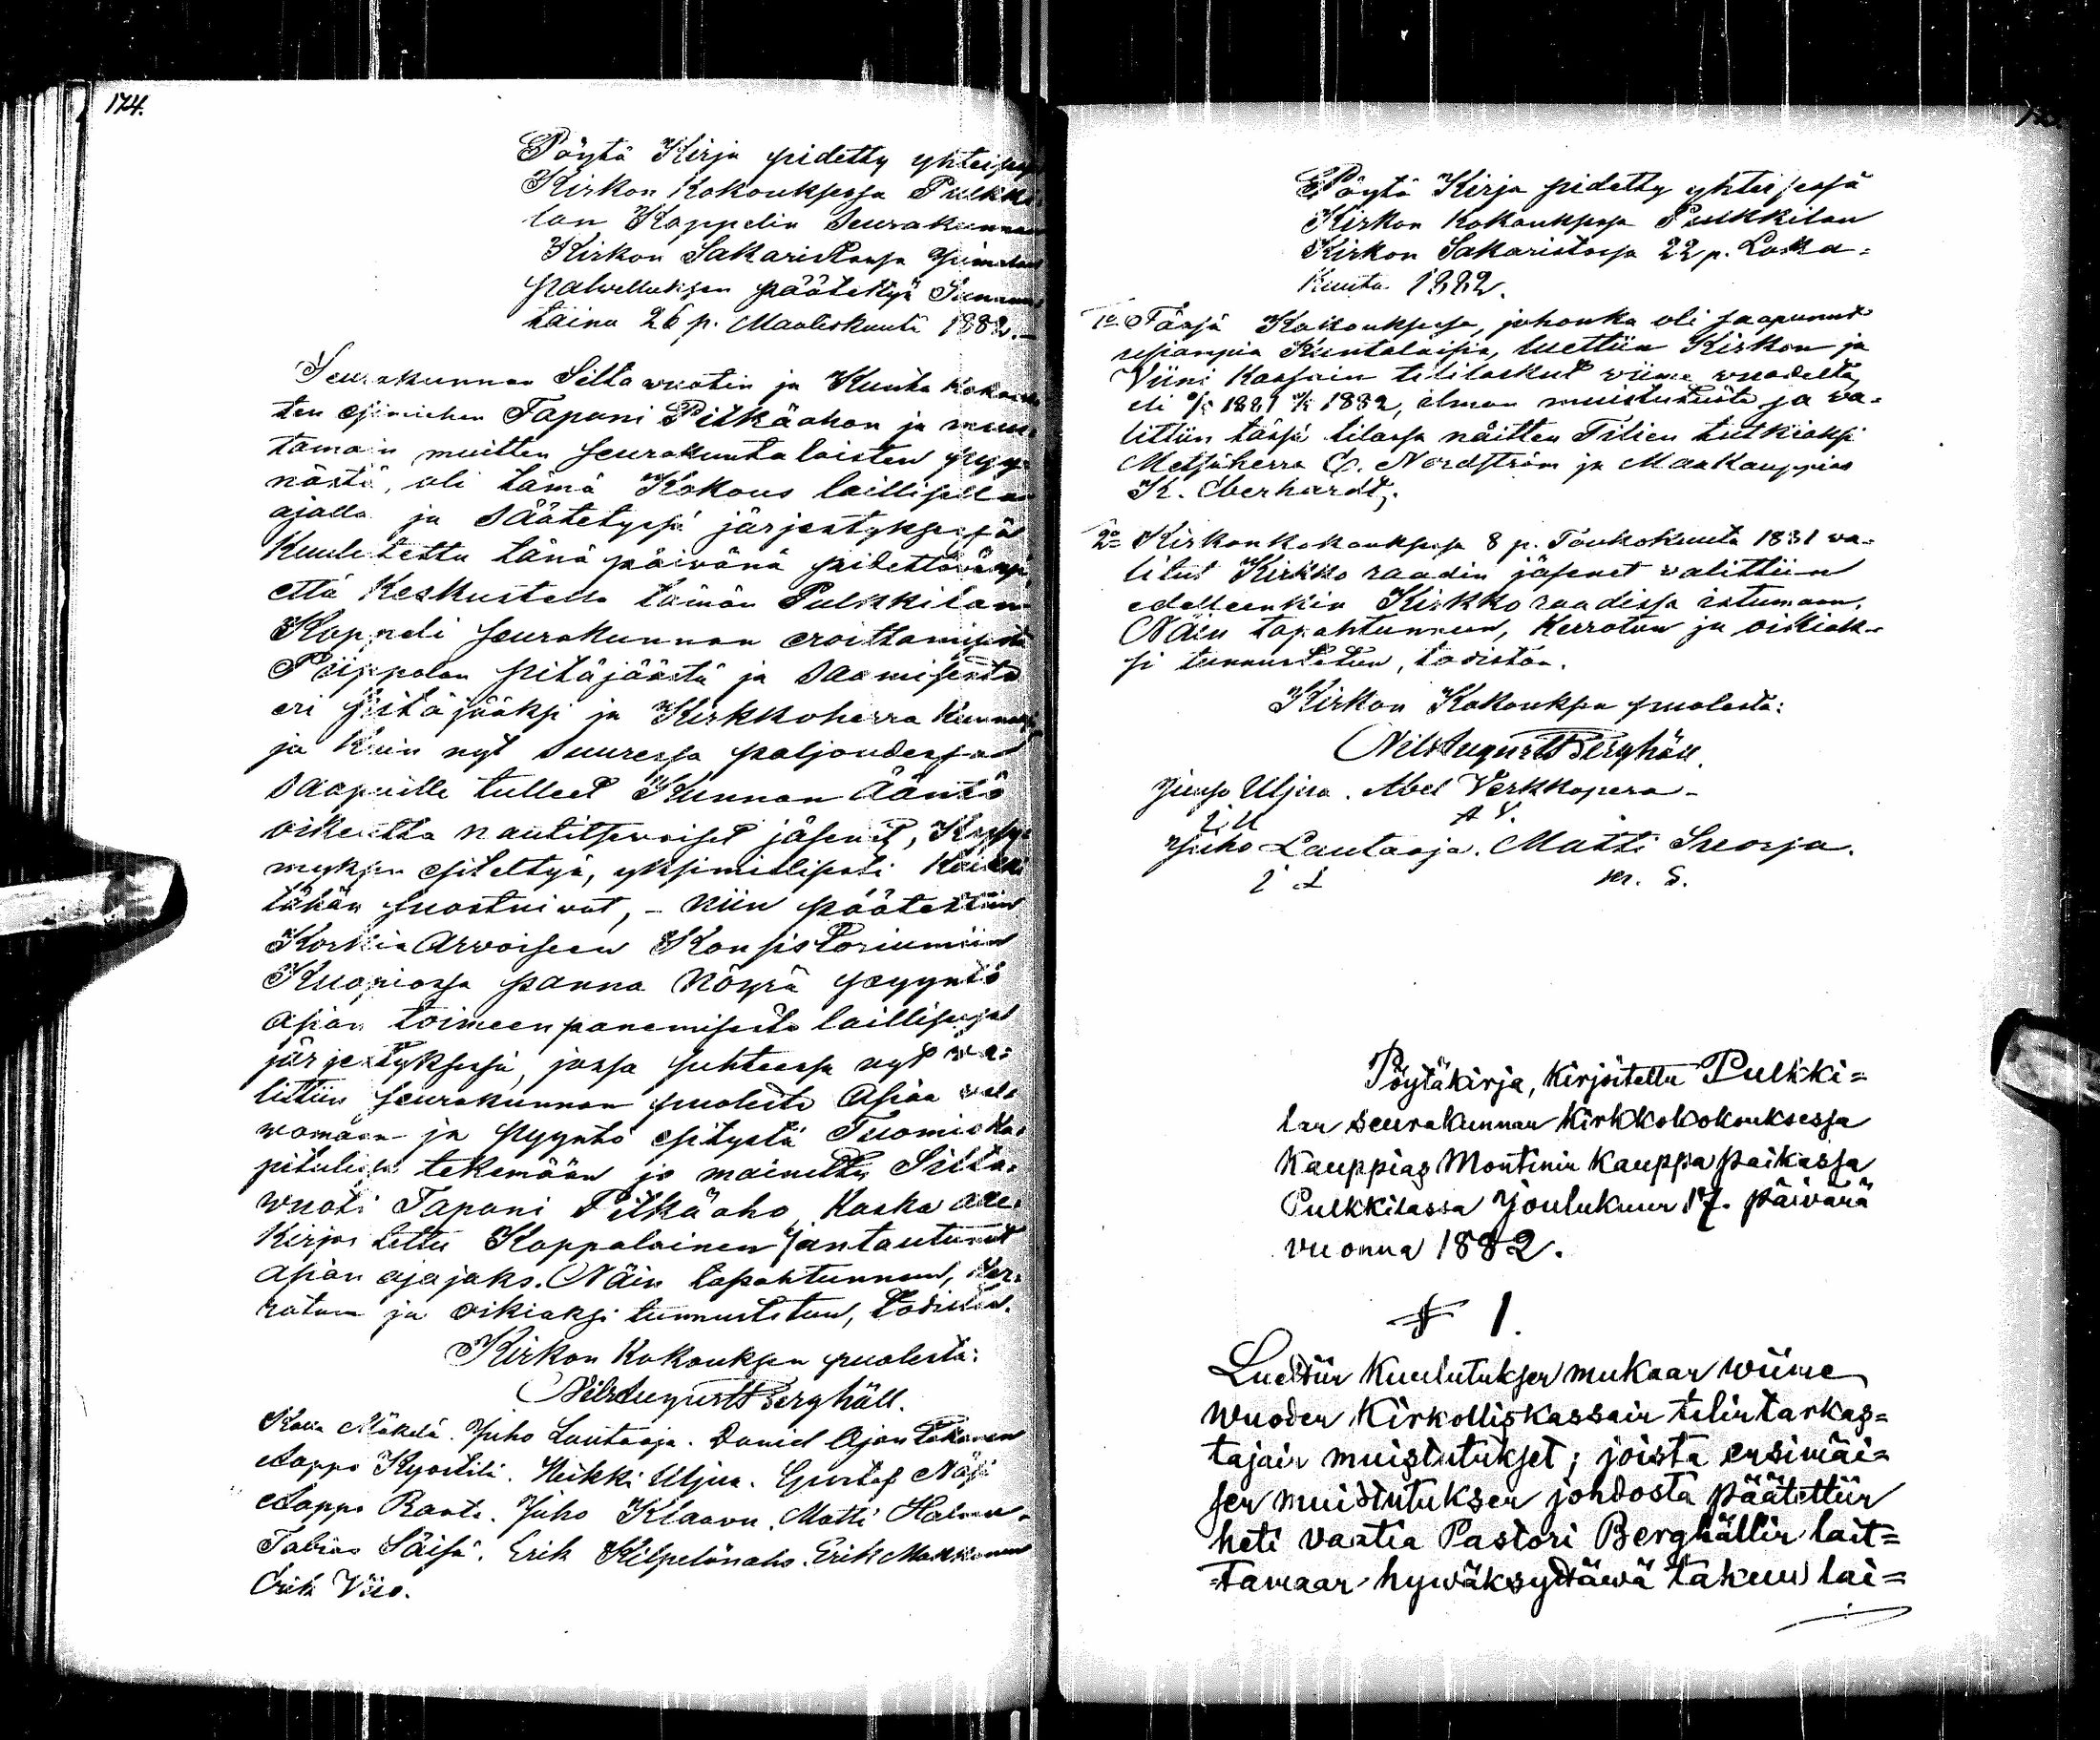 174.
Pöytä Kirja pidetty yhteisessä
Kirkon Kokouksessa Pulkki-
lan Kappelin Seurakunnan
Kirkon Sakaristossa Jumalan
palvelluksen päätettyä Sunnun-
taina 26 p. Maaliskuuta 1882.-
Seurakunnan Siltawuotin ja Kunta Kokous-
ten esimiehen Tapani Pitkäahon ja muu-
tamain muitten seurakuntalaisten pyyn-
nöstä, oli tämä Kokous laillisella
ajalla ja säätetyssä järjestyksessä
Kuulutettu tänä päivänä pidettäväksi,
että Keskustella tämän Pulkkilan
Kappeli seurakunnan eroittamisesta
Piippolan pitäjäästä ja saamisesta
eri pitäjääksi ja Kirkkoherra Kunnaksi,
ja Kuin nyt suuressa paljoudessa
saapuille tulleet Kunnan ääntö
oikeutta nautitsevaiset jäsenet, Kysy-
myksen esiteltyä, yksimielisesti Kaikki
tähän suostuivat, - niin päätettiin
Korkia Arvoiseen Konsistoriumiin
Kuopiossa panna nöyrä pyyntö
asian toimeenpanemisesta laillisessa
järjestyksessä, jossa suhteessa nyt wa-
littiin seurakunnan puolesta Asiaa val-
womaan ja pyyntö esitystä Tuomio Ka-
pitulissa tekemään jo mainittu Silta-
wuoti Tapani Pitkäaho, Koska alle-
Kirjoitettu Kappalainen antautunut
asian ajajaks. Näin tapahtunneen, Ker-
rotun ja oikiaksi tunnustetun, todistaa.
Kirkon Kokouksen puolesta:
Nils August Berghäll.
Mäkelä. Juho Lautaoja. Daniel Ajan Takanen
Aappo Kyöstilä. Heikki Uljua. Gustaf Näsi
Aappo Ranta. Juho Klaavu. Matti
Tobias Säisä. Erik Kilpelänaho. Erik Makkonen
Erik Viio.
Pöytä Kirja pidetty yhteisessä
Kirkon Kokouksessa Pulkkilan
Kirkon Sakaristossa 22 p. Loka-
Kuuta 1882.
1o Tässä Kokouksessa, johonka oli saapunut
useampia Kuntalaisia, luettiin Kirkon ja
Viini Kassain tililaskut viime vuodelta,
eli 1/5 1881 1/5 1882, ilman muistutusta ja va-
littiin tässä tilassa näitten Tilien tutkiaksi
Metsäherra C. Nordström ja Maakauppias
K. Eberhardt.
2o Kirkonkokouksessa 8 p. Toukokuuta 1881 va-
litut Kirkko raadin jäsenet valittiin
edelleenkin Kirkko raadissa istumaan.
Näin tapahtunneen, Kerrotun ja oikiak-
si tunnustetun, todistaa.
Kirkon Kokouksen puolesta:
Nils August Berghäll.
Juho Uljua. Abel Verkkopera-
J. U A V.
Juho Lautaoja. Matti Suoja.
J L M. S.
Pöytäkirja, kirjoitettu Pulkki=
lan seurakunnan kirkkokokouksessa
Kauppias Montinin kauppapaikassa
Pulkkilassa Joulukuun 17. päivänä
vuonna 1882.
§ 1.
Luettiin kuulutuksen mukaan wiime
wuoden Kirkolliskassain tilintarkas=
tajain muistutukset; joista ensimäi=
sen muistutuksen johdosta päätettiin
heti vaatia Pastori Berghällin lait=
=tamaan hywäksyttäwä takuu lai=